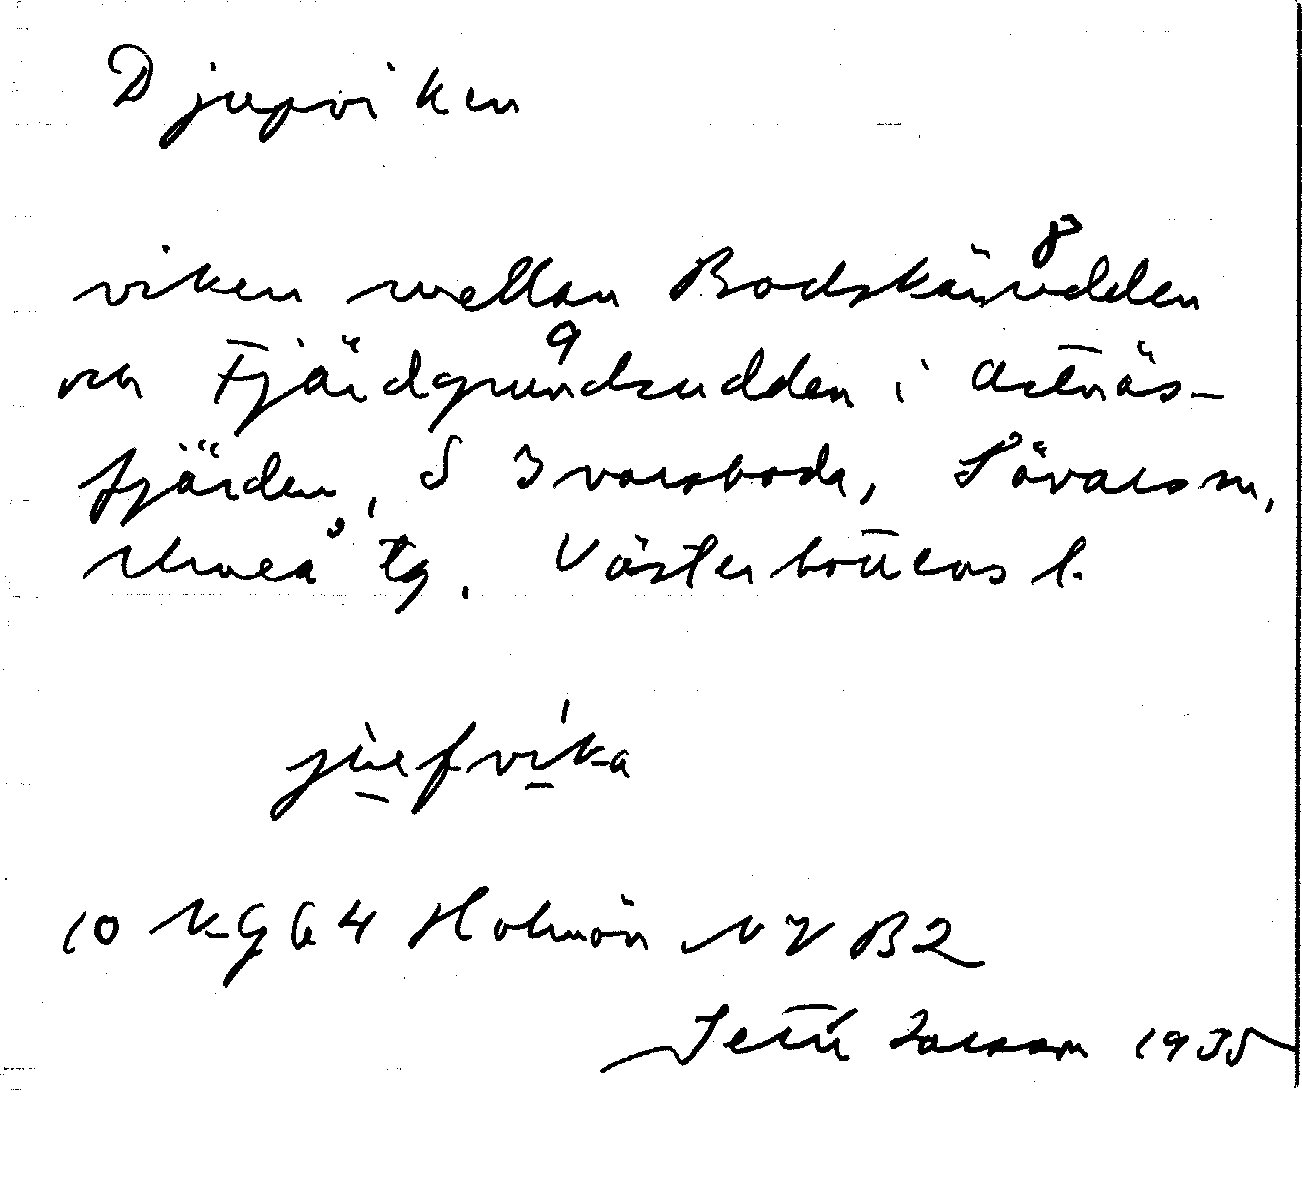 Djupviken
viken mellan Bodskärudden 8
och Fjärdgrundsudden 9 i Ostnäs-
fjärden, S Ivarsboda, Sävars sn,
Umeå tg. Västerbottens l.
10 kg 64 Holmön NV B2
Larsson 1935